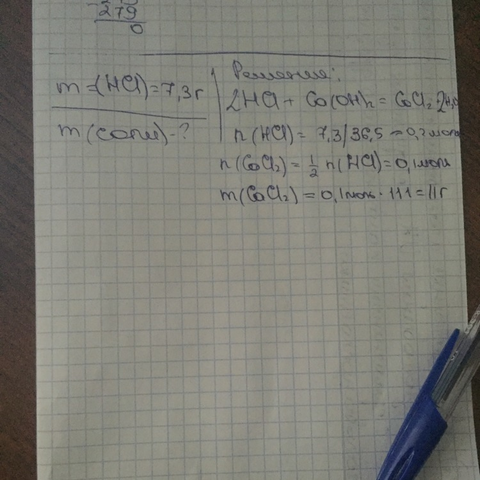 279
0
m=(HCl)=7,3г
m(соли)-?
Решение:
2HCl + Ca(OH)₂ = CaCl₂ 2H₂O
n(HCl) = 7,3/36,5 = 0,2моль
n(CaCl₂) = 1/2 n(HCl) = 0,1моль
m(CaCl₂) = 0,1моль · 111 = 11г